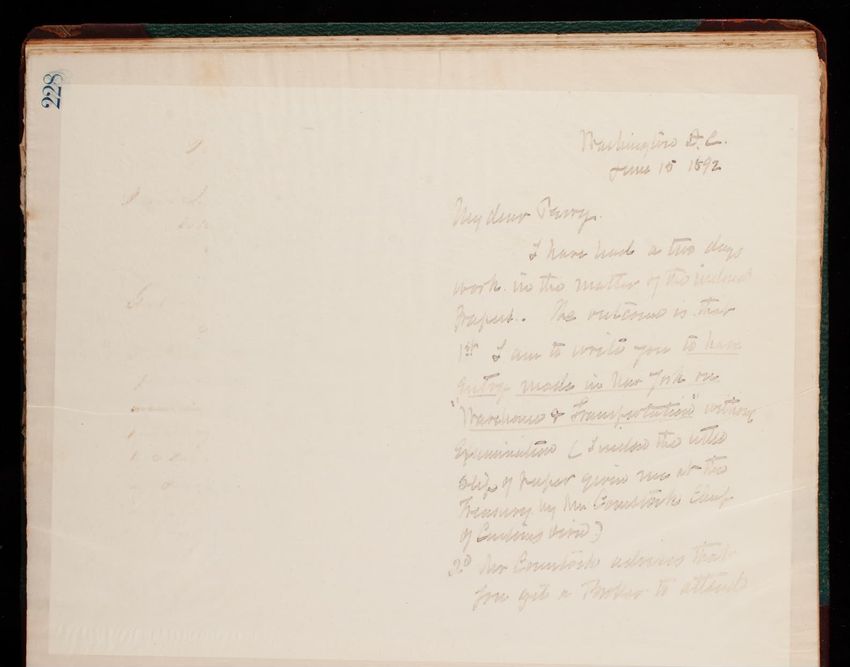 228
Washington D.C.
June 15 1892
My dear Perry.
I have had a two days
work in the matter of the inclosed
The outcome is that
1st I am to write you to have
Entry made in New York on
"Warehouse & Transportation" without
Examination (I inclose the
slip of paper given me at the
Treasury by Mr Comstock Chief
of Customs Divn)
2d Mr Comstock advises that
you get a Broker to attend